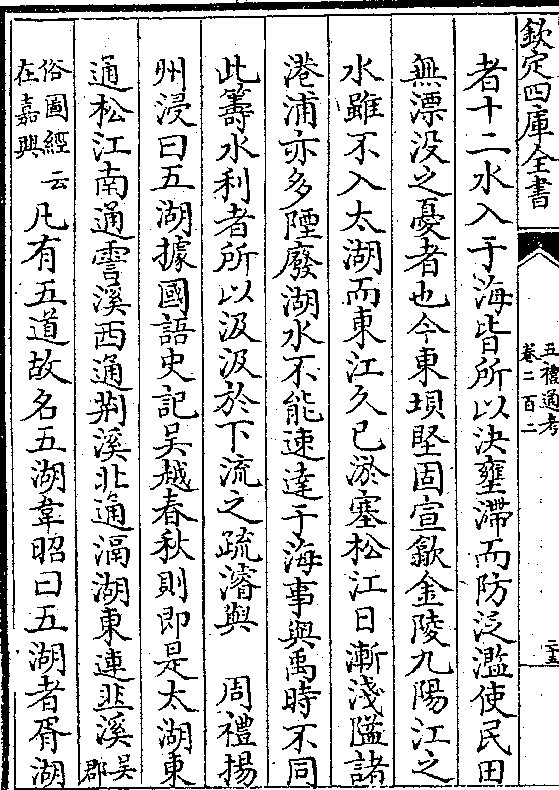 欽定四庫全書
五禮通考
卷二百二
二十五
者十二水入于海皆所以決壅滯而防泛濫使民田
無漂没之憂者也今東壩堅固宣歙金陵九陽江之
水雖不入太湖而東江久已淤塞松江日漸淺隘諸
港浦亦多陻廢湖水不能速達于海事與禹時不同
此籌水利者所以汲汲於下流之疏濬與　周禮揚
州浸曰五湖據國語史記吳越春秋則即是太湖東
通松江南通霅溪西通荆溪北通滆湖東連韭溪吳郡
俗圖經云在嘉興凡有五道故名五湖韋昭曰五湖者胥湖